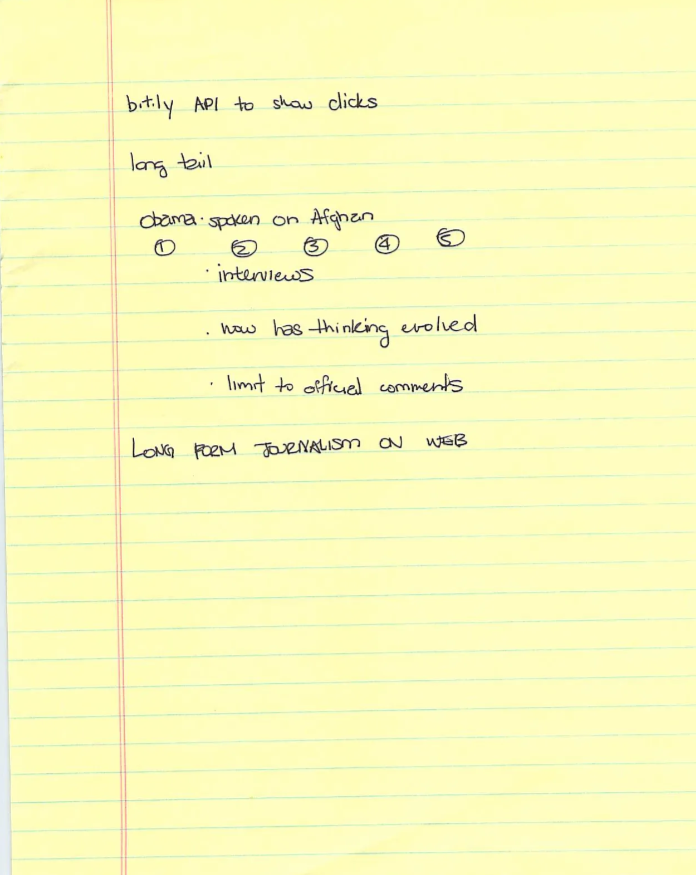 bit.ly API to show clicks
long tail
obama · spoken on Afghan
① ② ③ ④ ⑤
· interviews
· how has thinking evolved
· limit to official comments
LONG FORM JOURNALISM ON WEB